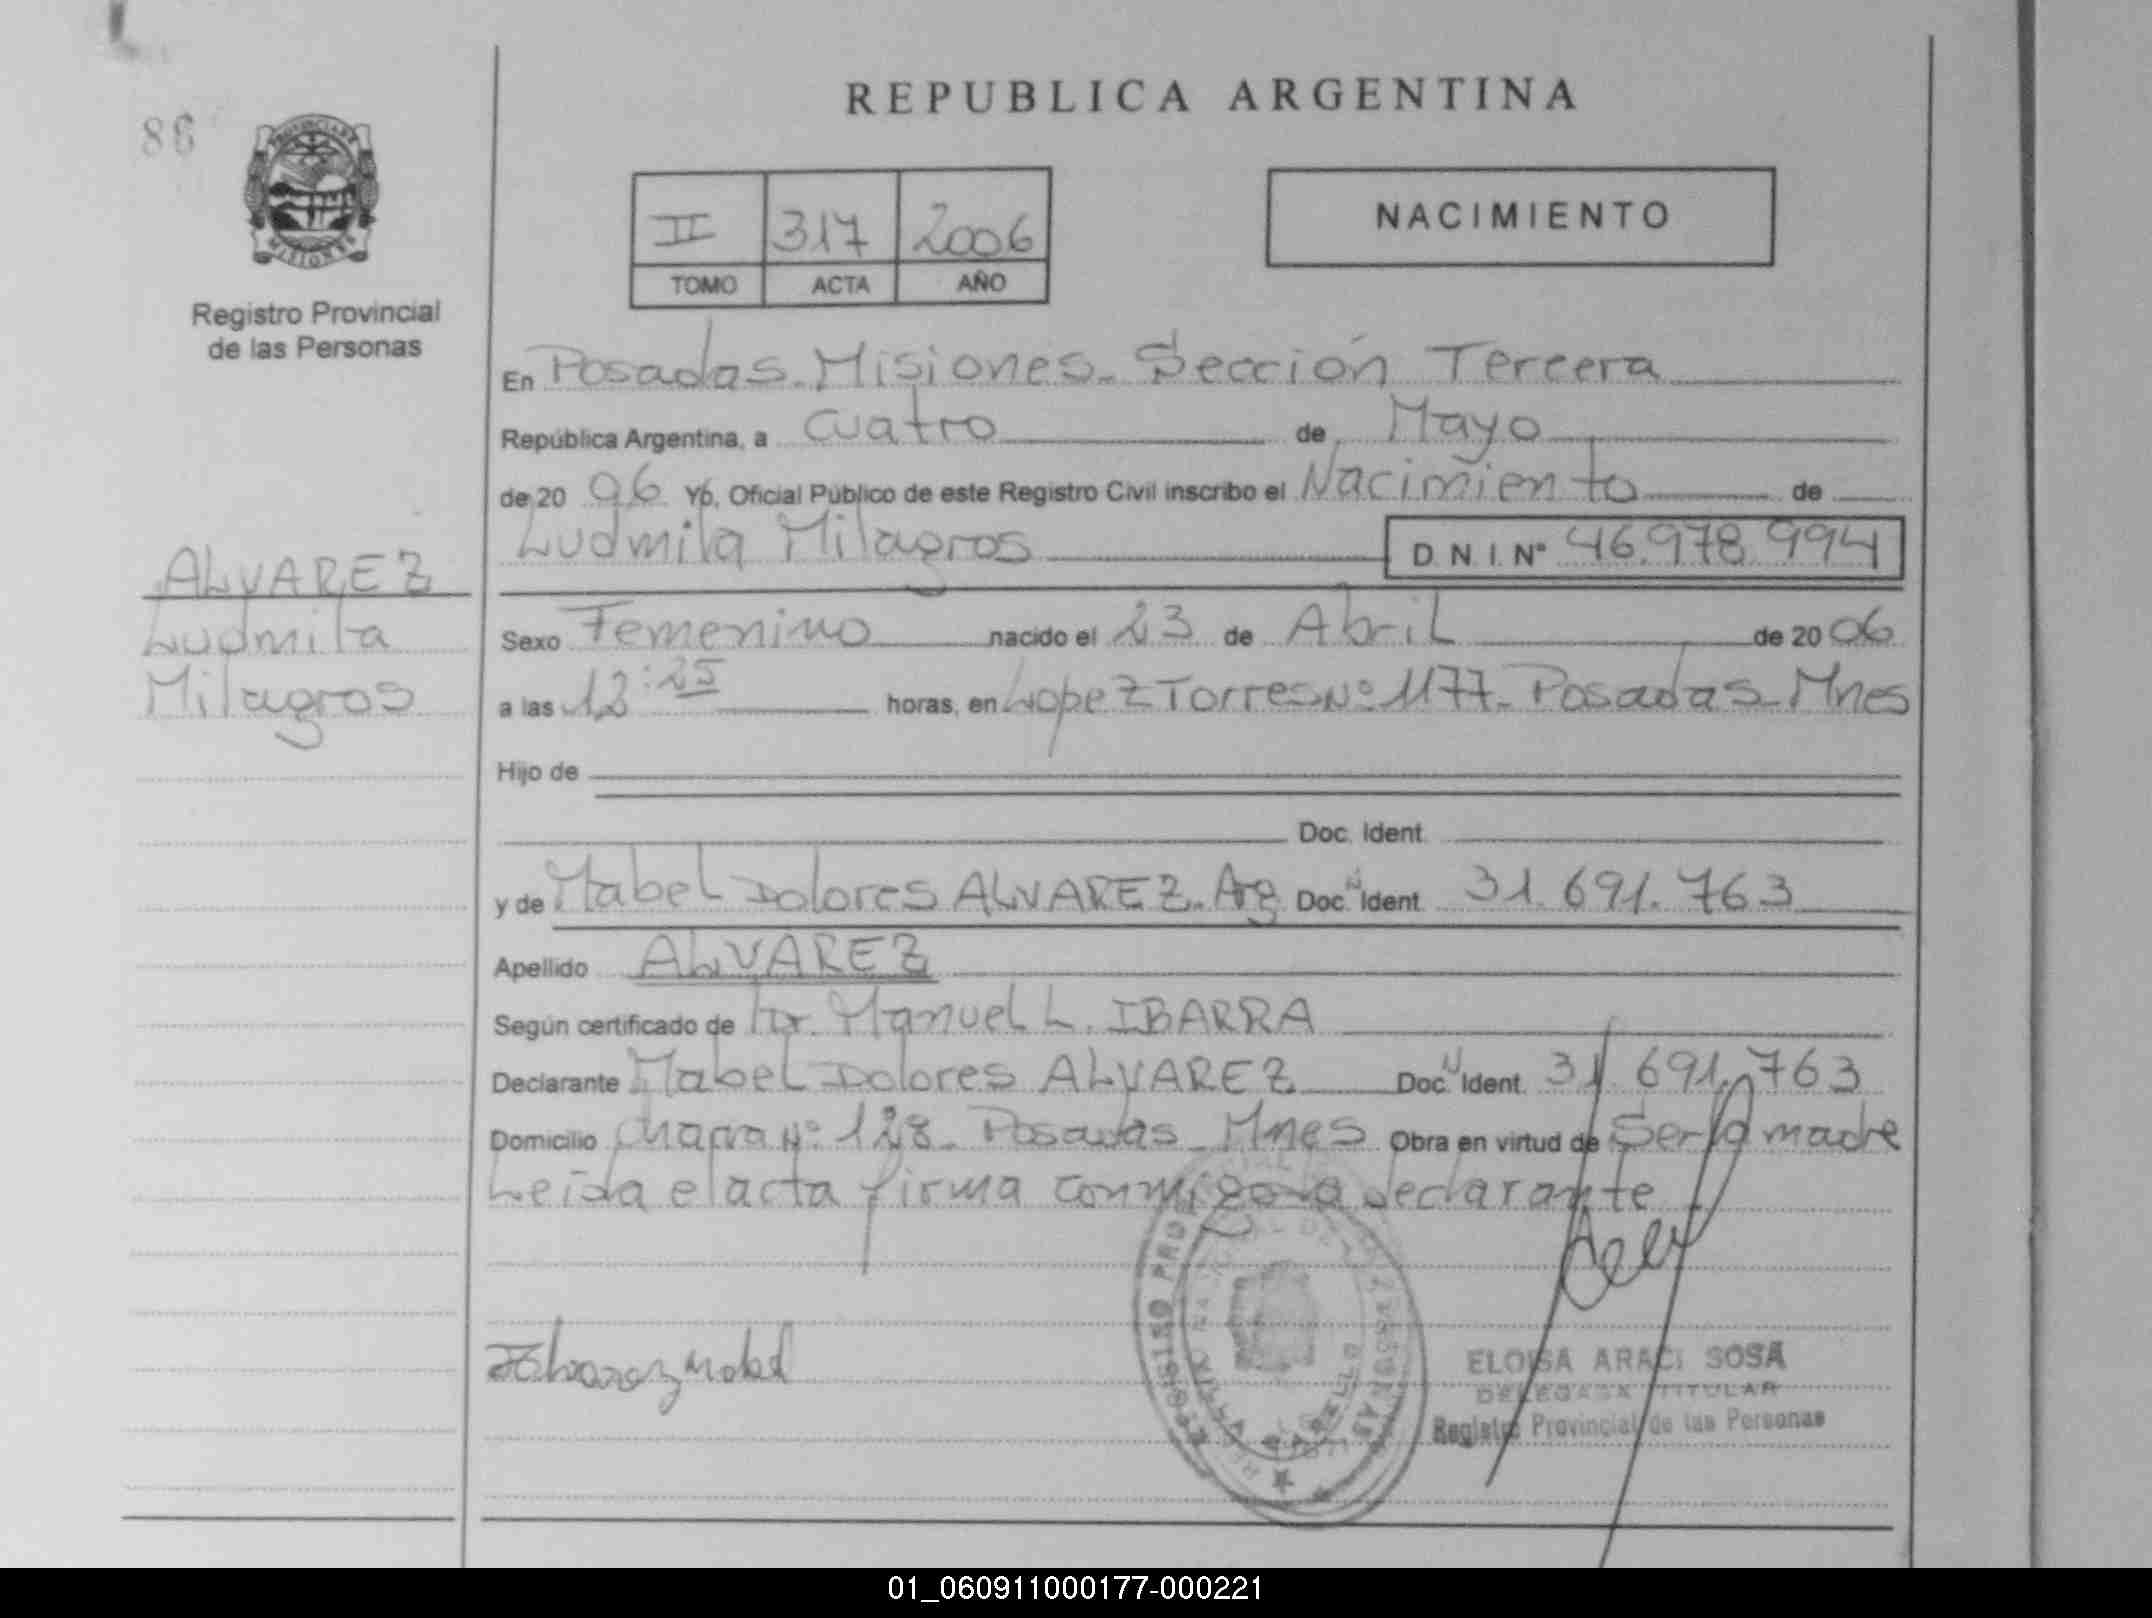 REPUBLICA ARGENTINA
86
PROVINCIA DE
MISIONES
Registro Provincial
de las Personas
II 317 2006
TOMO ACTA AÑO
NACIMIENTO
En Posadas. Misiones. Sección Tercera
República Argentina, a cuatro de Mayo
de 20 06 Yo, Oficial Público de este Registro Civil inscribo el Nacimiento de
Ludmila Milagros D. N. I. Nº 46.978.994
ALVAREZ
Ludmila
Milagros
Sexo Femenino nacido el 23 de Abril de 20 06
a las 12:25 horas, en Lopez Torres Nº 1177. Posadas. Mnes
Hijo de
Doc. Ident.
y de Mabel Dolores ALVAREZ. Arg Doc. N Ident. 31.691.763
Apellido ALVAREZ
Según certificado de Dr. Manuel L. IBARRA
Declarante Mabel Dolores ALVAREZ Doc. N Ident. 31.691.763
Domicilio Chacra Nº 128. Posadas. Mnes Obra en virtud de Ser la madre
Leída el acta firma conmigo la declarante
Alvarez Mabel
ELOISA ARACI SOSA
DELEGADA TITULAR
Registro Provincial de las Personas
01_060911000177-000221